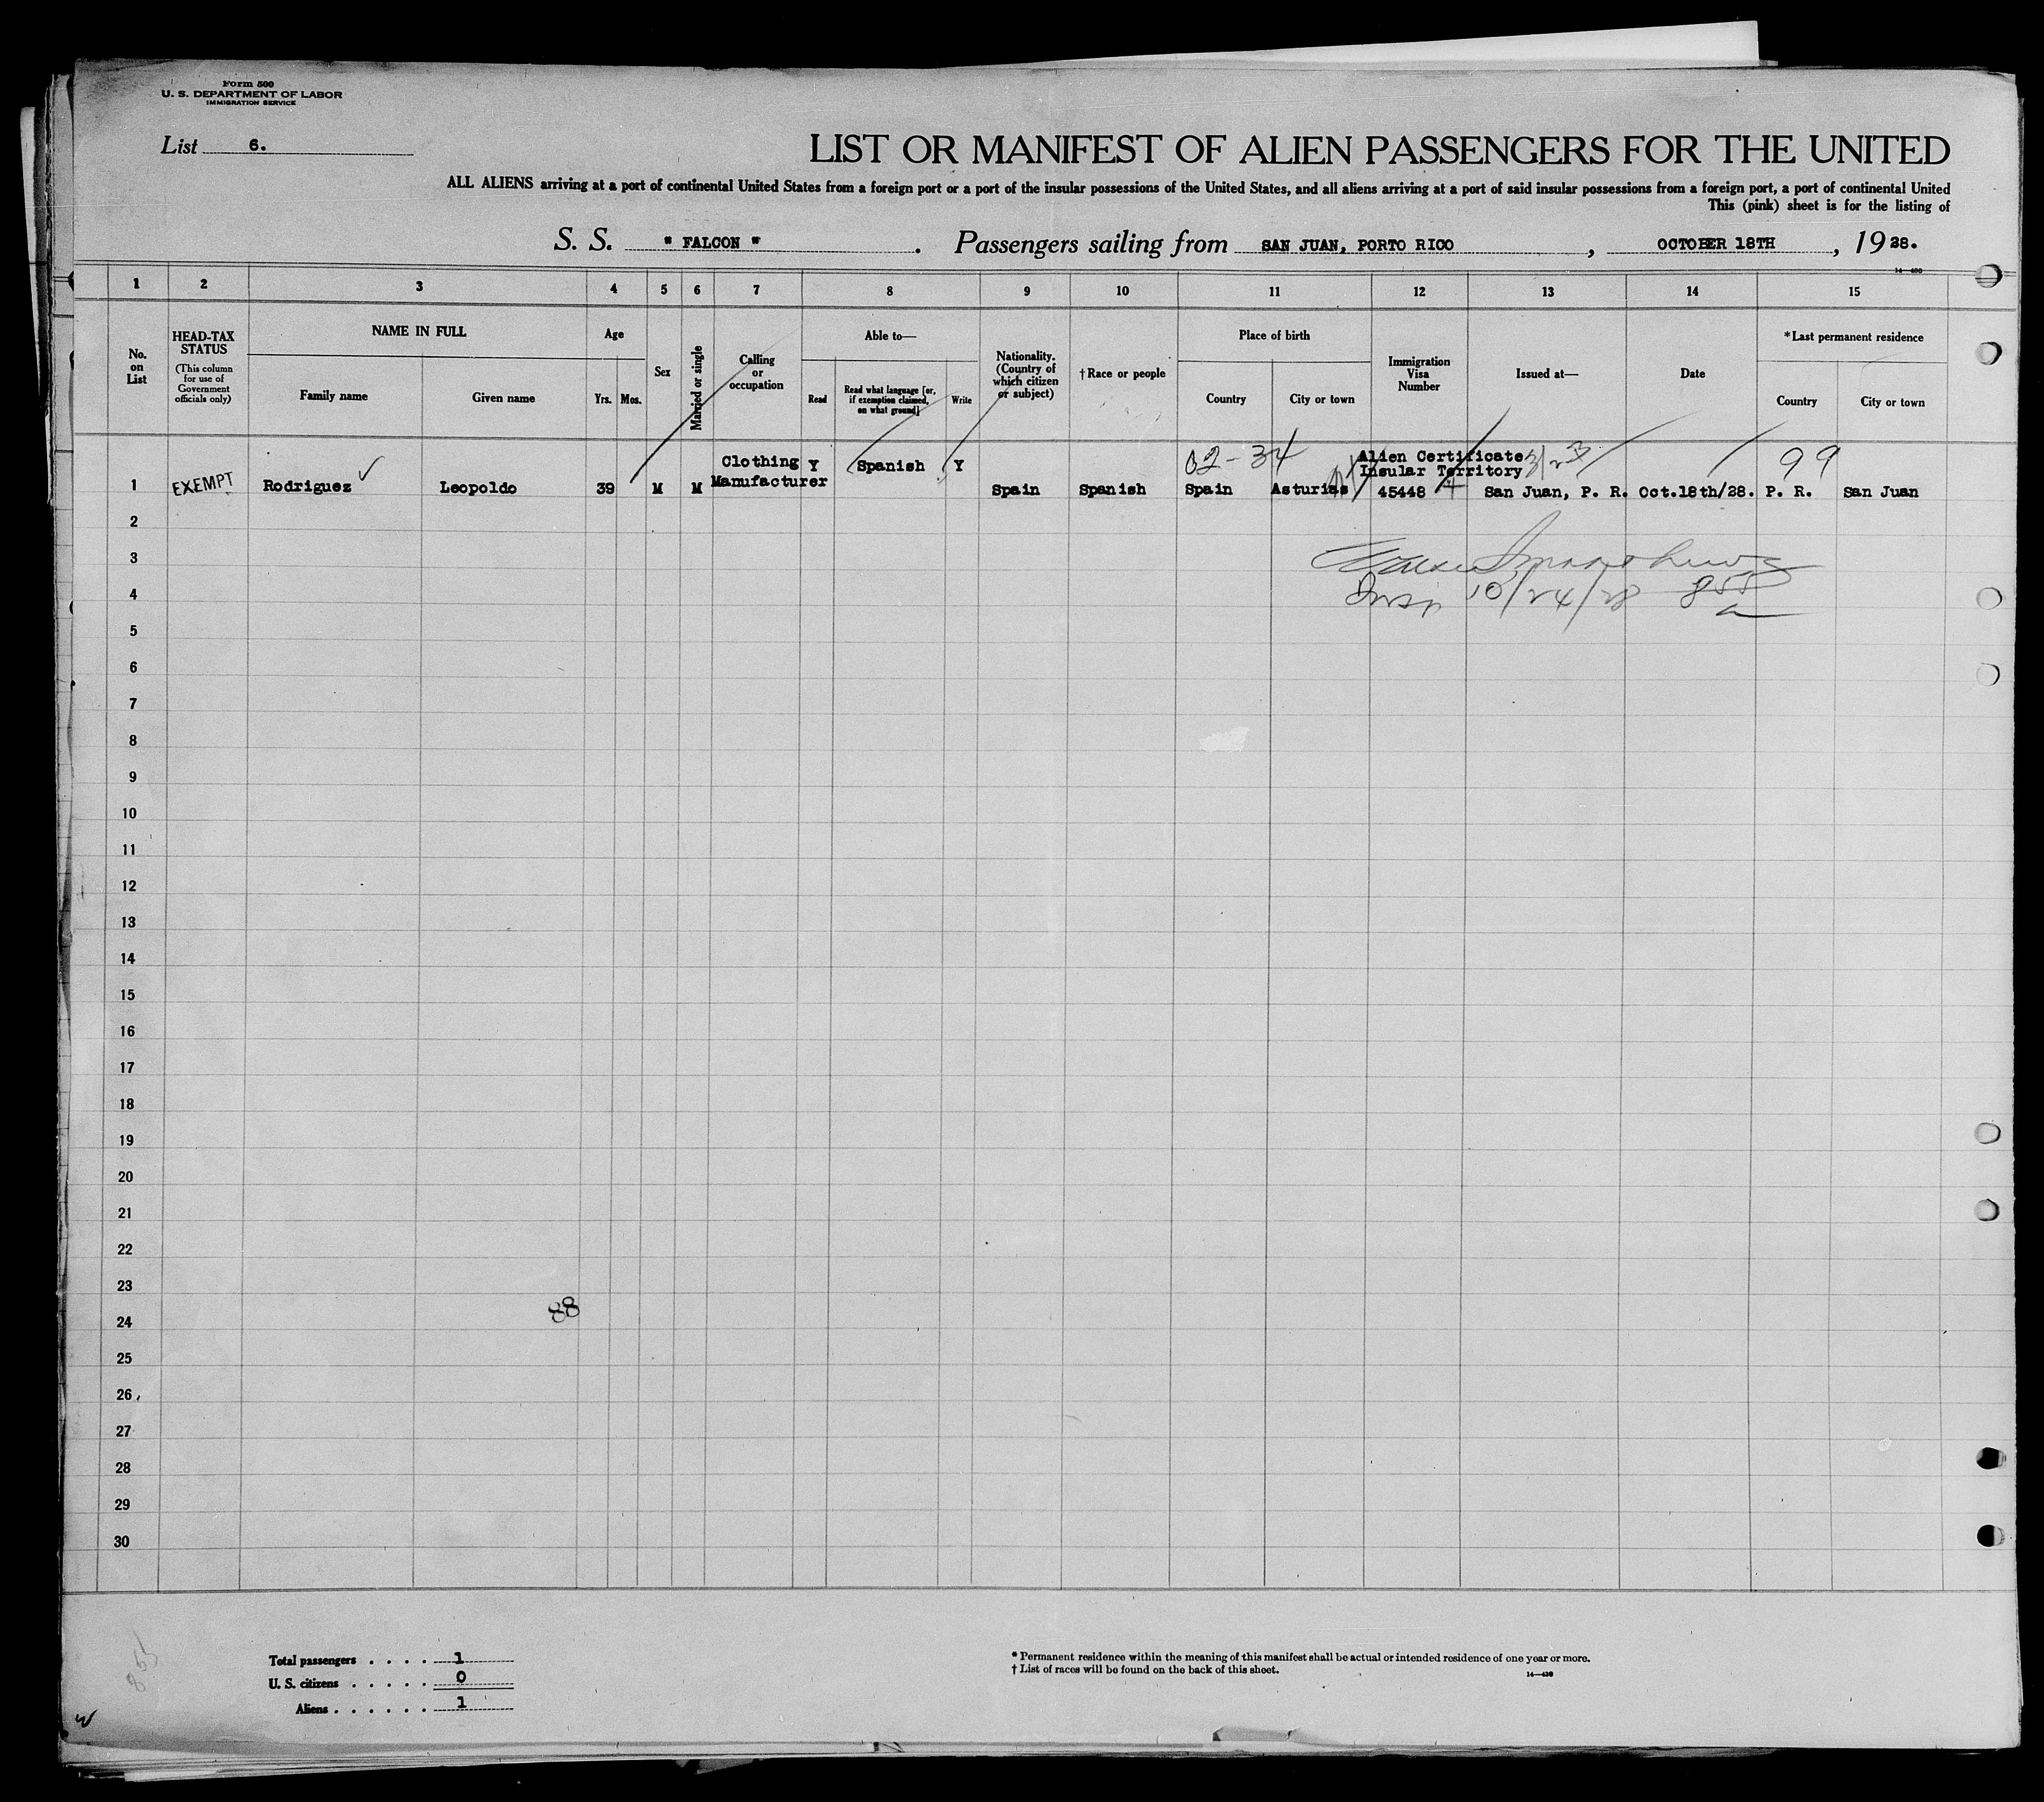 Form 500
U. S. DEPARTMENT OF LABOR
IMMIGRATION SERVICE
List 6.
LIST OR MANIFEST OF ALIEN PASSENGERS FOR THE UNITED
ALL ALIENS arriving at a port of continental United States from a foreign port or a port of the insular possessions of the United States, and all aliens arriving at a port of said insular possessions from a foreign port, a port of continental United
This (pink) sheet is for the listing of
S. S. " FALCON " . Passengers sailing from SAN JUAN, PORTO RICO , OCTOBER 18TH , 19 28.
14—430
1 2 3 4 5 6 7 8 9 10 11 12 13 14 15
No. on List
HEAD-TAX STATUS
(This column for use of Government officials only)
NAME IN FULL
Family name
Given name
Age
Yrs. Mos.
Sex
Married or single
Calling or occupation
Able to—
Read
Read what language [or, if exemption claimed, on what ground]
Write
Nationality. (Country of which citizen or subject)
†Race or people
Place of birth
Country
City or town
Immigration Visa Number
Issued at—
Date
*Last permanent residence
Country
City or town
02-34
99
Alien Certificate
Insular Territory
1 EXEMPT Rodriguez Leopoldo 39 M M Clothing Manufacturer Y Spanish Y Spain Spanish Spain Asturias 45448 San Juan, P. R. Oct.18th/28. P. R. San Juan
2
3
10/24/28 855
4
5
6
7
8
9
10
11
12
13
14
15
16
17
18
19
20
21
22
23
88
24
25
26
27
28
29
30
855
Total passengers . . . . 1
U. S. citizens . . . . . 0
Aliens . . . . . . 1
* Permanent residence within the meaning of this manifest shall be actual or intended residence of one year or more.
† List of races will be found on the back of this sheet.
14—430